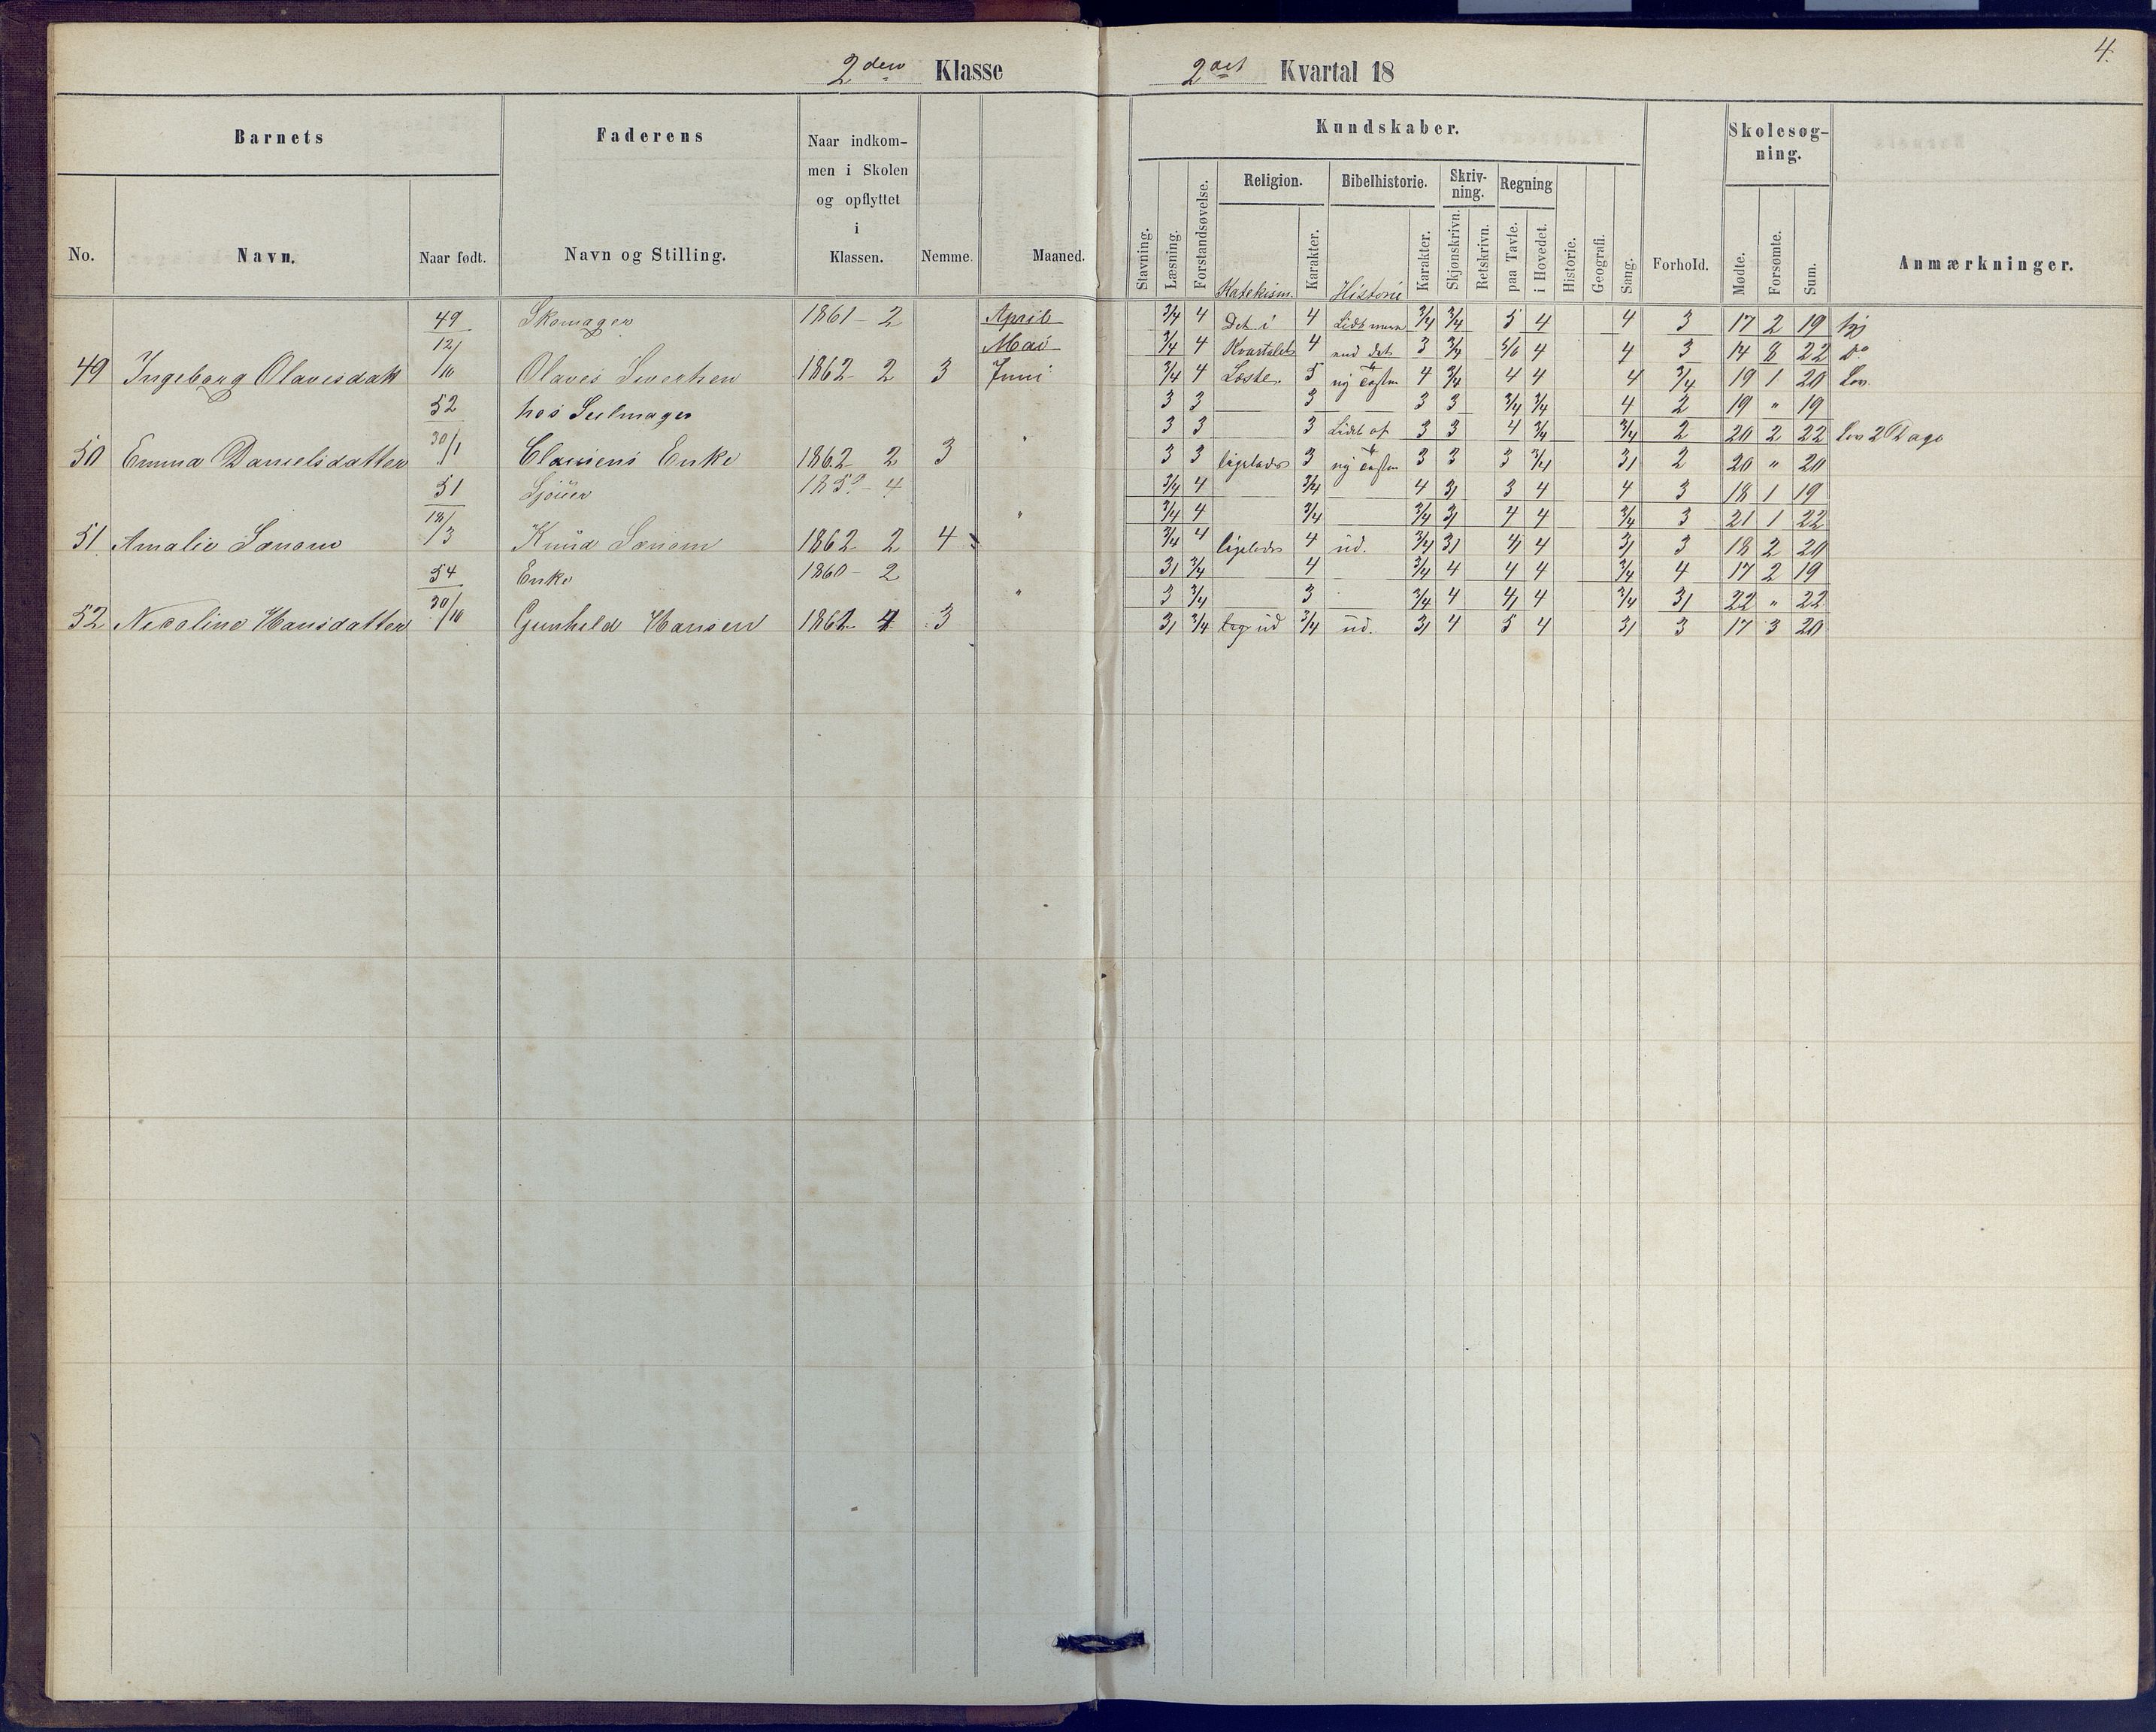 4.
2den Klasse 2det Kvartal 18
Barnets Faderens Naar indkom-
men i Skolen
og opflyttet
i
Klassen. Nemme. Maaned.
No. Navn. Naar født. Navn og Stilling.
Kundskaber. Skolesøg-
ning.
Religion. Bibelhistorie. Skriv-
ning. Regning
Stavning. Læsning. Forstandsøvelse. Katekism. Karakter. Historie Karakter. Skjønskrivn. Retskrivn. paa Tavle. i Hovedet. Historie. Geografi. Sang. Forhold. Mødte. Forsømte. Sum. Anmærkninger.
49 Skomager 1861 - 2 April 3/4 4 Det i 4 Lidt mere 3/4 3/4 5 4 4 3 17 2 19
12/ Mai 3/4 4 Kvartalet 4 end det 3 3/4 5/6 4 4 3 14 8 22 do
49 Ingeborg Olavesdatt /10 Olaves Sivertsen 1862 - 2 3 Juni 3/4 4 Læste. 5 ny 4 3/4 4 4 4 3/4 19 1 20 Lov
52 hos Seilmager 3 3 3 3 3 3/4 3/4 4 2 19 " 19
30/1 3 3 3 Lidt af 3 3 4 3/4 3/4 2 20 2 22 Lov 2 Dage
50 Emma Danielsdatter Clausens Enke 1862 2 3 3 3 ligeledes 3 ny 3 3 3 3/4 3/ 2 20 " 20
51 4 3/4 4 3/4 4 3/ 3 4 4 3 18 1 19
18/3 " 3/4 4 3/4 3/4 3/ 4 4 3/4 3 21 1 22
51 Amalie Knud 1862 2 4 3/4 4 ligeledes 4 ud. 3/4 3/ 4/ 4 3/ 3 18 2 20
54 Enke 1860 - 2 3/ 3/4 4 3/4 4 4 4 3/4 4 17 2 19
30/10 " 3 3/4 3 3/4 4 4/ 4 3/4 3/ 22 " 22
52 Nicoline Hansdatter Gunhild Hansen 1862 4 3 3/ 3/4 ud 3/4 ud. 3/ 4 5 4 3/ 3 17 3 20